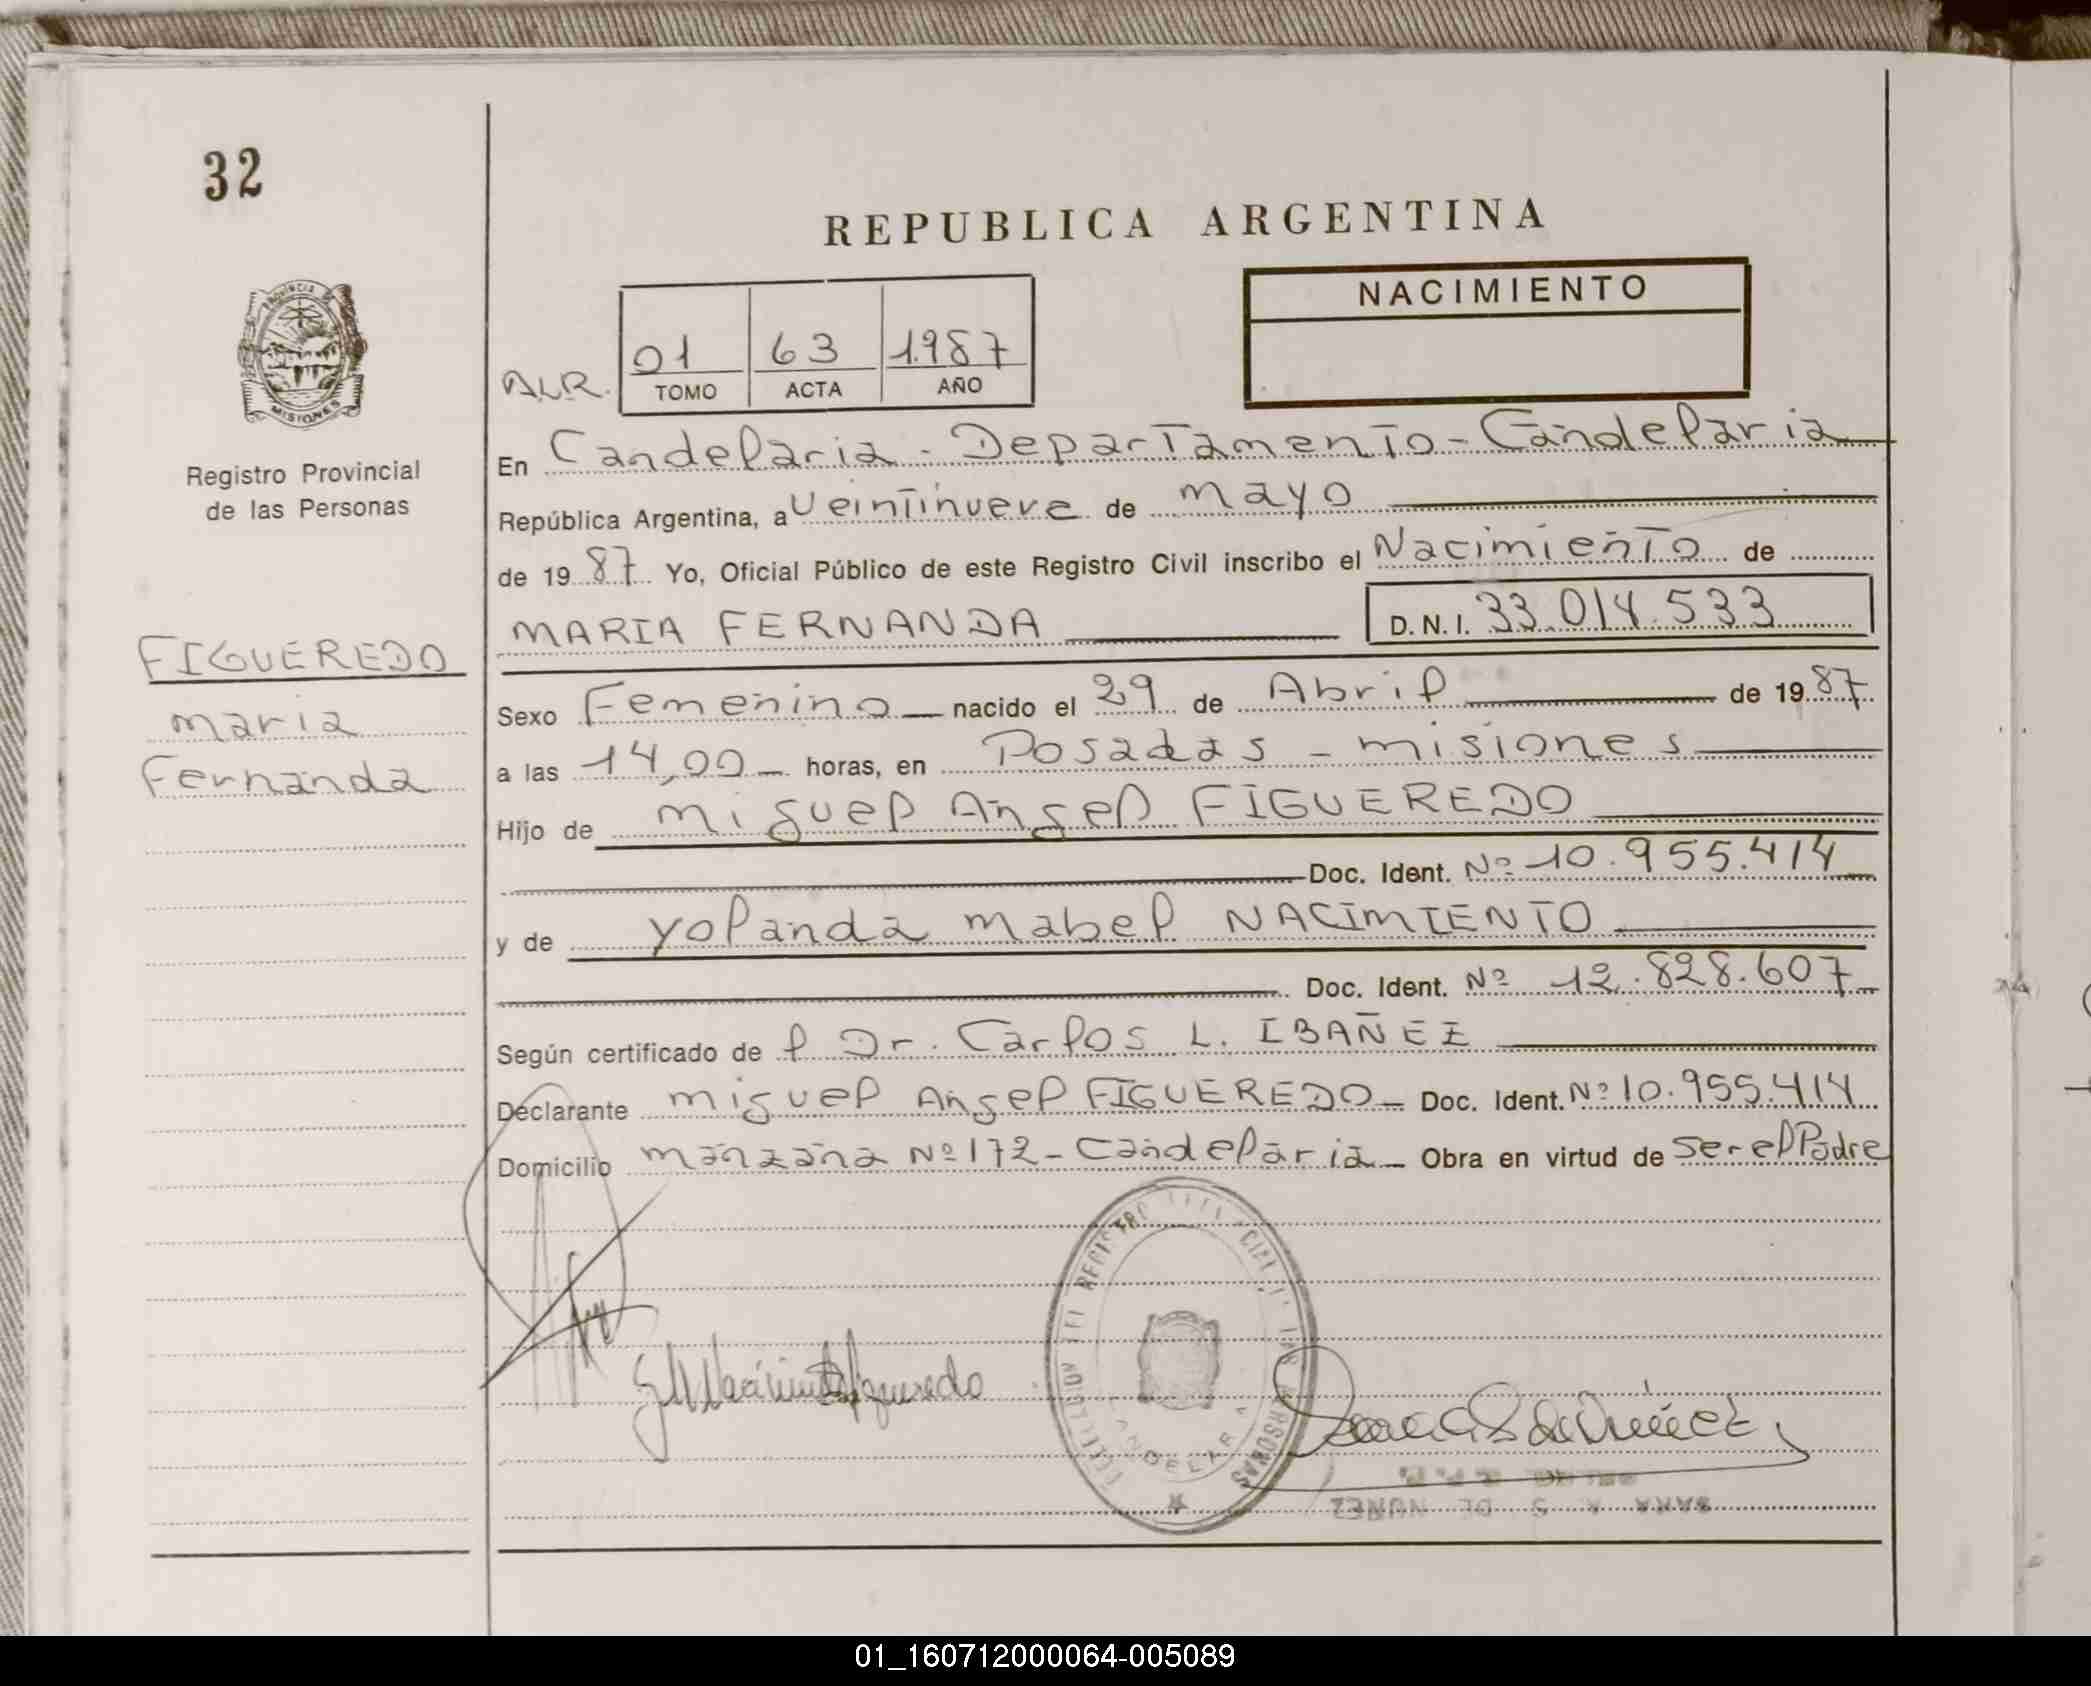 32
REPUBLICA ARGENTINA
NACIMIENTO
01 63 1987
TOMO ACTA AÑO
PROVINCIA DE
MISIONES
Registro Provincial
de las Personas
FIGUEREDO
maria
Fernanda
En Candelaria - Departamento - Candelaria
República Argentina, a Veintinueve de mayo
de 19 87 Yo, Oficial Público de este Registro Civil inscribo el Nacimiento de
MARIA FERNANDA D.N.I. 33.014.533
Sexo Femenino nacido el 29 de Abril de 19 87
a las 14,00 horas, en Posadas - misiones
Hijo de miguel Angel FIGUEREDO
Doc. Ident. Nº 10.955.414
y de yolanda mabel NACIMIENTO
Doc. Ident. Nº 12.828.607
Según certificado de l Dr. Carlos L. IBAÑEZ
Declarante miguel Angel FIGUEREDO Doc. Ident. Nº 10.955.414
Domicilio manzana Nº 172 - Candelaria Obra en virtud de ser el Padre
DEL REGISTRO DE LAS PERSONAS
CANDELARIA
SARA R. S DE NUÑEZ
01_160712000064-005089